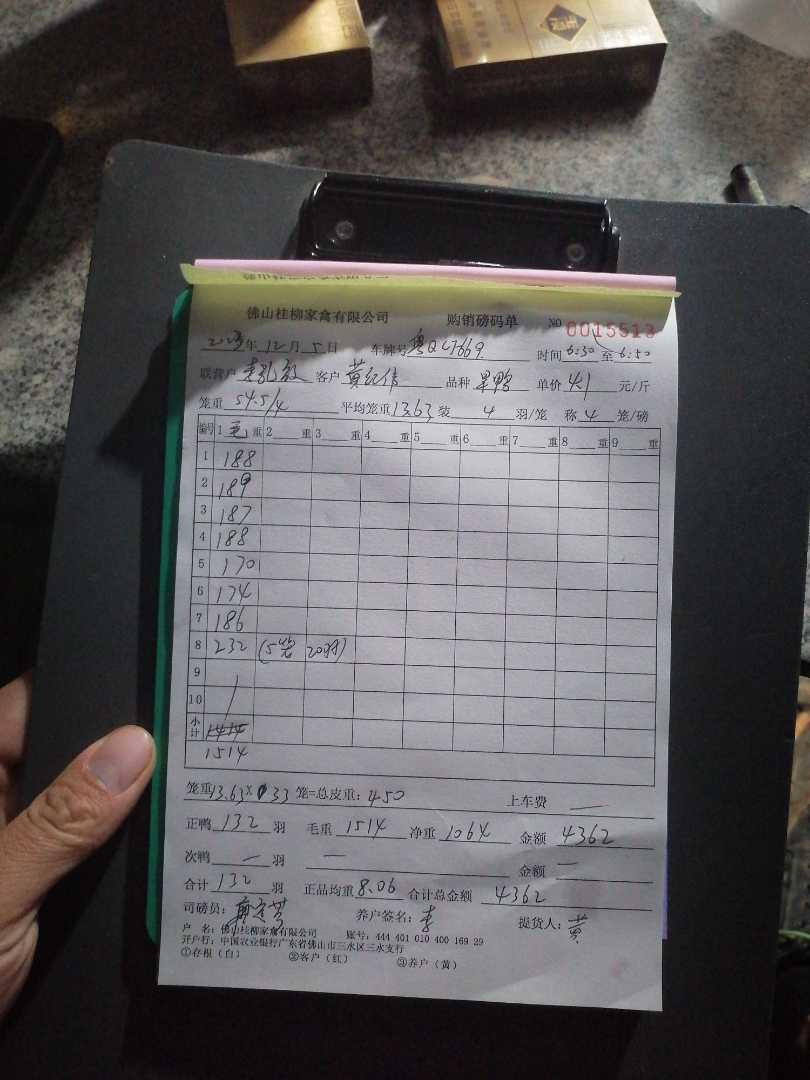 佛山桂柳家禽有限公司 购销磅码单 NO 0015513
年 12 月 5 日 车牌号 粤Q 时间 6:30 至 6:50
联营户 客户 黄纪伟 品种 果鸭 单价 4.1 元/斤
笼重 54.5/4 平均笼重 13.63 装 4 羽/笼 称 4 笼/磅
编号 1 毛 重 2 重 3 重 4 重 5 重 6 重 7 重 8 重 9 重
1 188
2 189
3 187
4 188
5 170
6 174
7 186
8 232 (5笼 20羽)
9
10
小计 1414
1514
笼重 13.63 × 33 笼=总皮重: 450 上车费 —
正鸭 132 羽 毛重 1514 净重 1064 金额 4362
次鸭 — 羽 — 金额 —
合计 132 羽 正品均重 8.06 合计总金额 4362
司磅员: 养户签名: 李 提货人: 黄
户 名: 佛山桂柳家禽有限公司 账号: 444 401 010 400 169 29
开户行: 中国农业银行广东省佛山市三水区三水支行
①存根(白) ②客户(红) ③养户(黄)